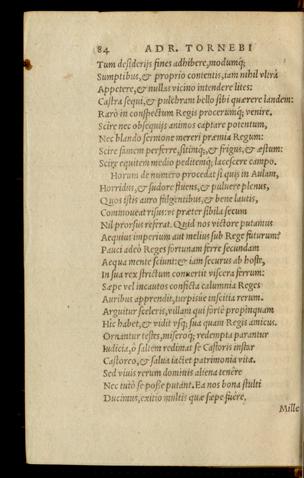 84 ADR. TORNEBI
Tum desiderijs fines adhibere, modumq́;
Sumptibus, & proprio contentis, iam nihil vltrà
Appetere, & nullas vicino intendere lites:
Castra sequi, & pulchram bello sibi quærere laudem:
Rarò in conspectum Regis procerumq́; venire.
Scire nec obsequijs animos captare potentum,
Nec blando sermone mereri præmia Regum:
Scire famem perferre, sitimq́;, & frigus, & æstum:
Scire equitem medio peditemq́; lacessere campo.
Horum de numero procedat si quis in Aulam,
Horridus, & sudore fluens, & puluere plenus,
Quos istis auro fulgentibus, & bene lautis,
Commoueat risus: vt præter sibila secum
Nil prorsus referat. Quid nos victore putamus
Aequius imperium aut melius sub Rege futurum?
Pauci adeò Reges fortunam ferre secundam
Aequa mente sciunt: & iam securus ab hoste,
In sua rex strictum conuertit viscera ferrum:
Sæpe vel incautos conficta calumnia Reges
Auribus apprendit, turpisue inscitia rerum.
Arguitur sceleris, villam qui fortè propinquam
Hic habet, & vidit vsq́; sua quam Regis amicus.
Ornantur testes, miseroq́; redempta parantur
Iudicia, ô saltem redimat se Castoris instar
Castoreo, & salua iactet patrimonia vita.
Sed viuis rerum dominis aliena tenere
Nec tutò se posse putant. Ea nos bona stulti
Ducimus, exitio multis quæ sæpe fuére,
Mille